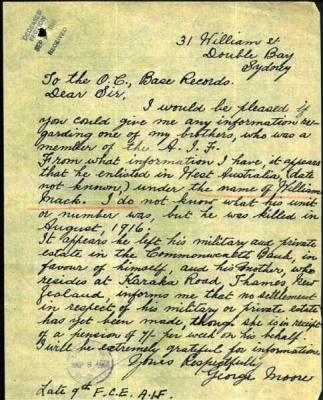 31 William St
Double Bay
Sydney
To the O.C., Base Records.
Dear Sir,
I would be pleased if
you could give me any information re-
garding one of my brothers, who was a
member of the A.I.F.
From what information I have, it appears
that he enlisted in West Australia, (date
not known,) under the name of William
Mack. I do not know what his unit
or number was, but he was killed in
August, 1916.
It appears he left his military and private
estate in the Commonwealth Bank, in
favour of himself, and his Mother, who
resides at Karaka Road, Thames, New
Zealand, informs me that no settlement
in respect of his military or private estate
has yet been made, though she is in receipt
of a pension of per week on his behalf.
I will be extremely grateful for information.
Yours Respectfully
George Moore
Late 9th F.C.E. A.I.F.
RECEIVED